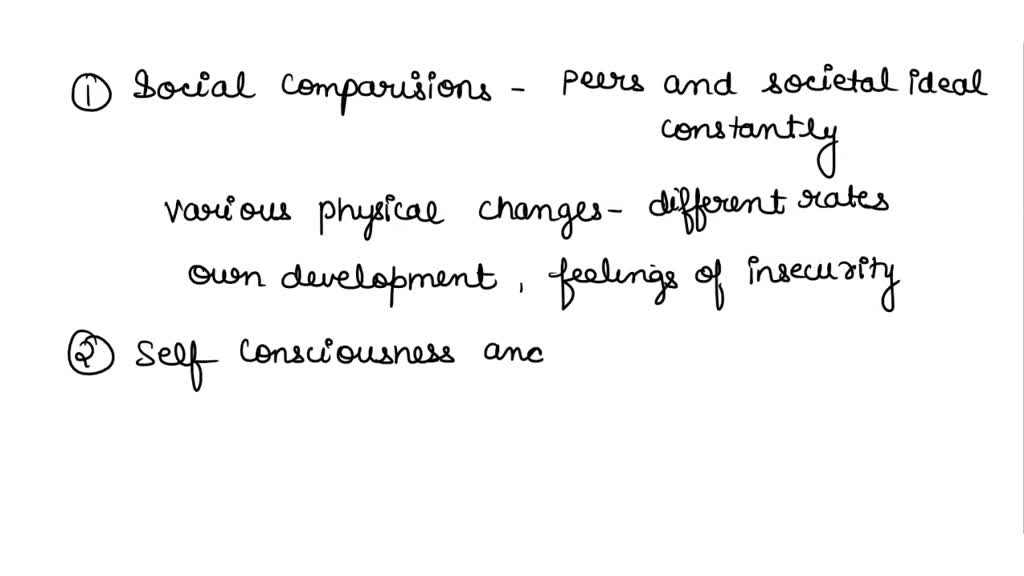 ① Social comparisions - peers and societal ideal
constantly
various physical changes - different rates
own development, feelings of insecurity
② Self consciousness anc